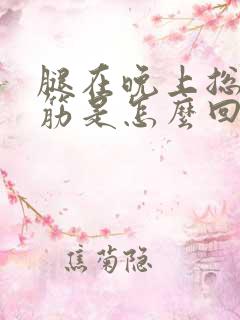 腿在晚上总
筋是怎麼回
焦菊隐